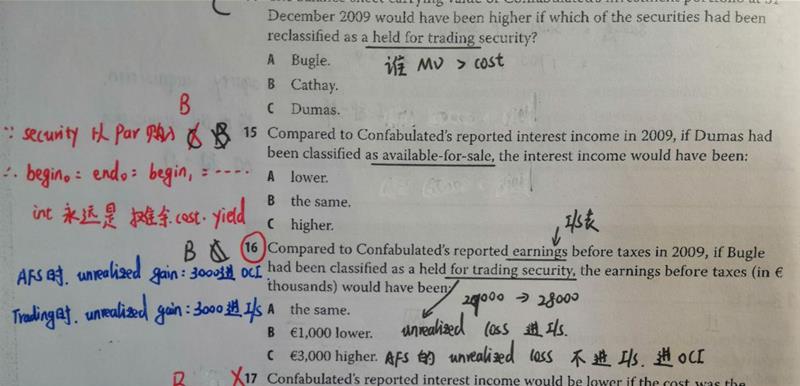 December 2009 would have been higher if which of the securities had been
reclassified as a held for trading security?
A Bugle.
谁 MV > cost
B Cathay.
C Dumas.
B
∵ security 以 par 购入
B
15 Compared to Confabulated's reported interest income in 2009, if Dumas had
been classified as available-for-sale, the interest income would have been:
∴ begin₀ = end₀ = begin₁ = ----
A lower.
B the same.
int 永远是 摊余 cost · yield
C higher.
I/S表
B
16 Compared to Confabulated's reported earnings before taxes in 2009, if Bugle
had been classified as a held for trading security, the earnings before taxes (in €
AFS时. unrealized gain: 3000进 OCI
thousands) would have been:
29000 → 28000
Trading时. unrealized gain: 3000 进 I/S
A the same.
B €1,000 lower.
unrealized loss 进 I/S.
C €3,000 higher.
AFS 的 unrealized loss 不进 I/S. 进 OCI
B
X
17 Confabulated's reported interest income would be lower if the cost was the